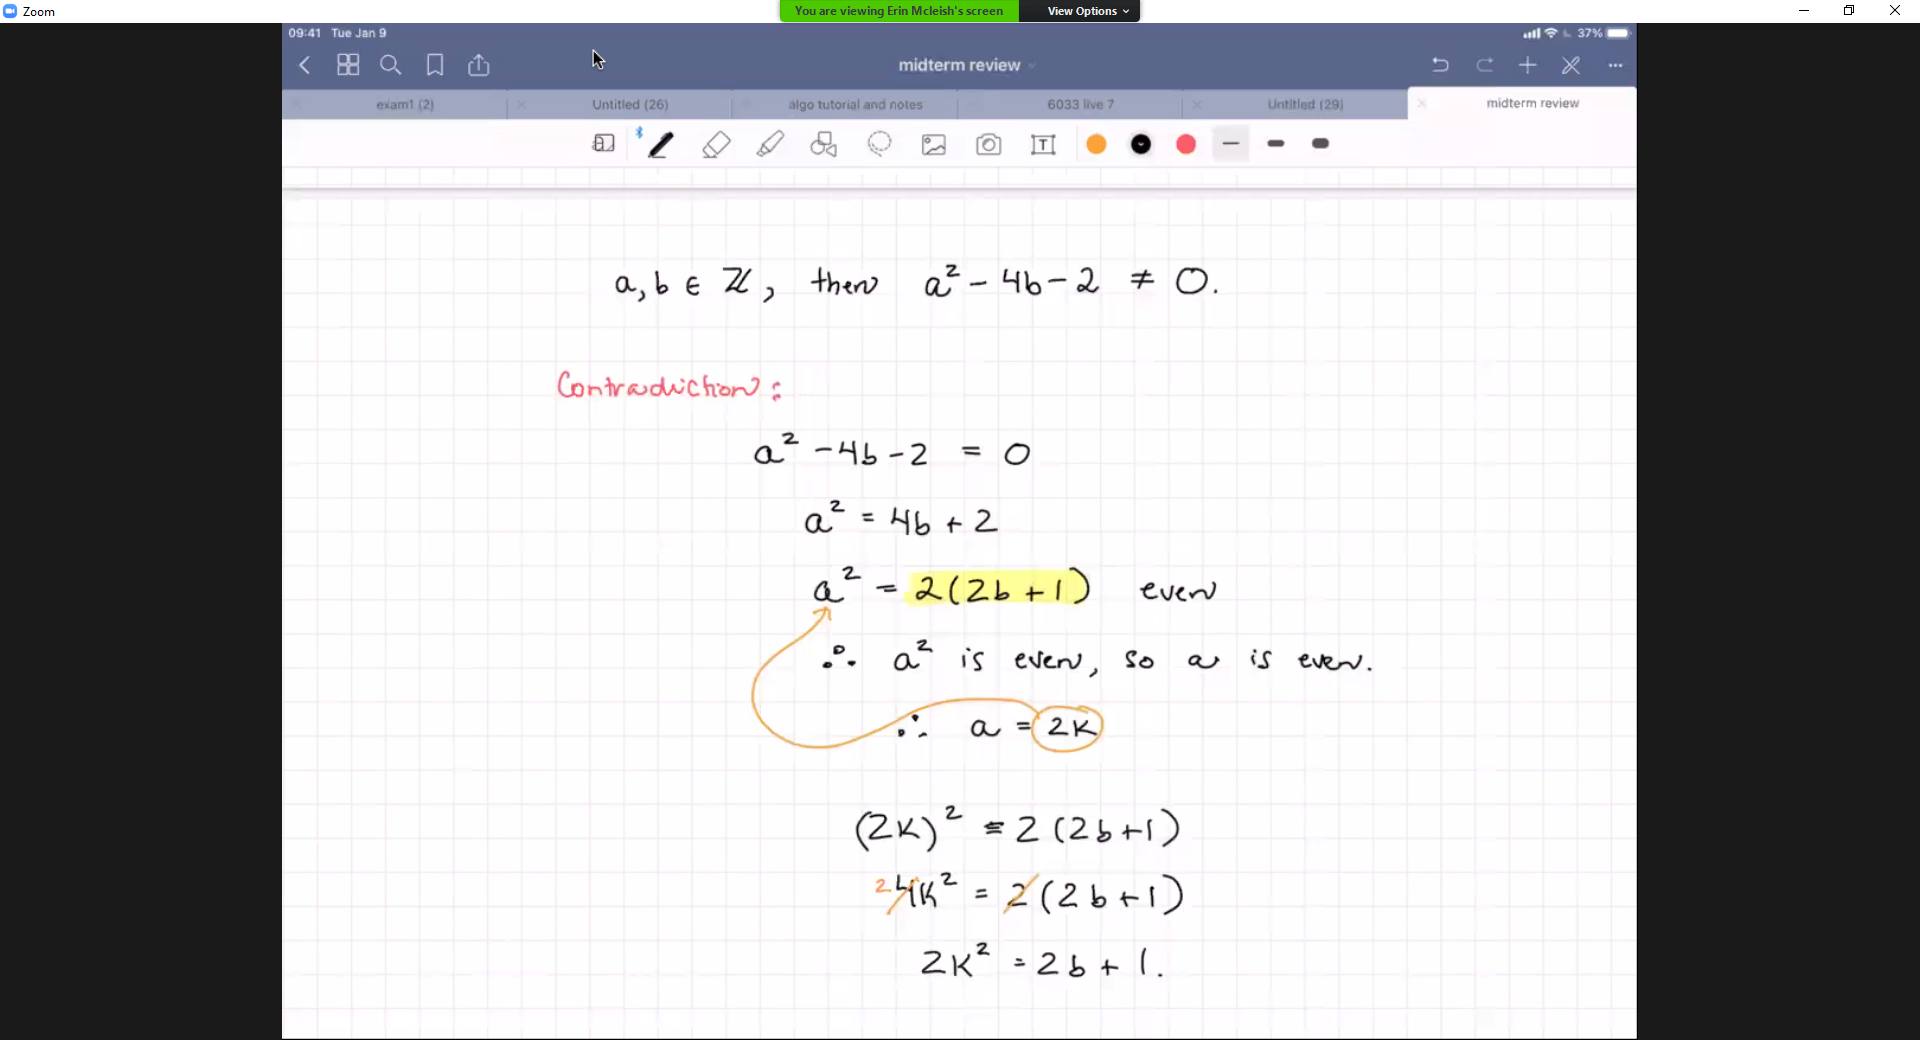 Zoom
You are viewing Erin Mcleish's screen View Options
09:41 Tue Jan 9
37%
midterm review
exam1 (2) Untitled (26) algo tutorial and notes 6033 live 7 Untitled (29) midterm review
a, b ∈ ℤ, then a² - 4b - 2 ≠ 0.
Contradiction:
a² - 4b - 2 = 0
a² = 4b + 2
a² = 2(2b + 1) even
∴ a² is even, so a is even.
∴ a = 2k
(2k)² = 2(2b+1)
2 4k² = 2(2b+1)
2k² = 2b + 1.